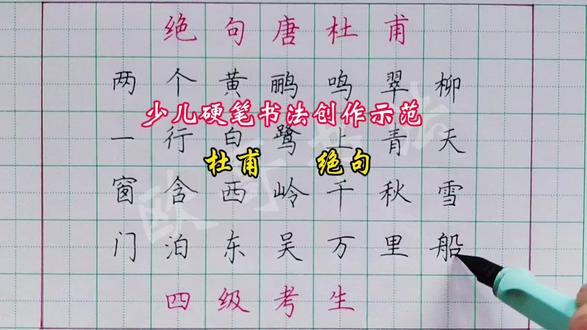 绝句唐杜甫
两个黄鹂鸣翠柳
少儿硬笔书法创作示范
一行白鹭上青天
杜甫 绝句
窗含西岭千秋雪
门泊东吴万里船
四级考生